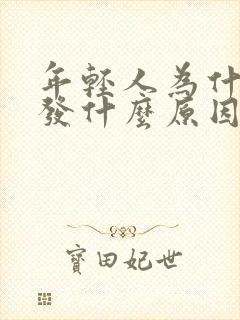 年輕人為什
發什麼原因
寶田妃世